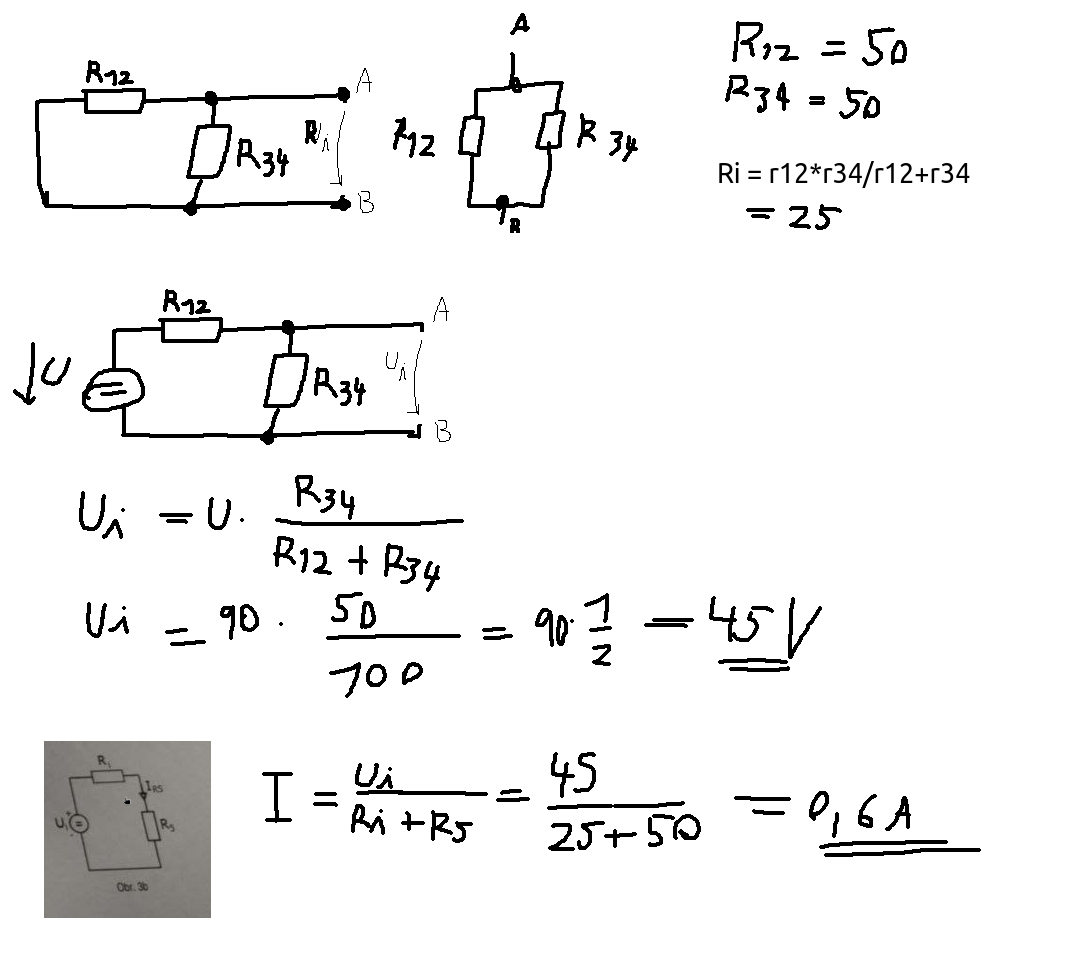 A
R12
A
R12 = 50
R34 = 50
R12
R34
Ui
R12
R34
B
Ri = r12*r34/r12+r34
= 25
R12
A
U
R34
Ui
B
Ui = U · R34 / R12 + R34
Ui = 90 · 50 / 100 = 90 · 1/2 = 45 V
Ri
IR5
Ui
R5
Obr. 3b
I = Ui / Ri + R5 = 45 / 25 + 50 = 0,6 A